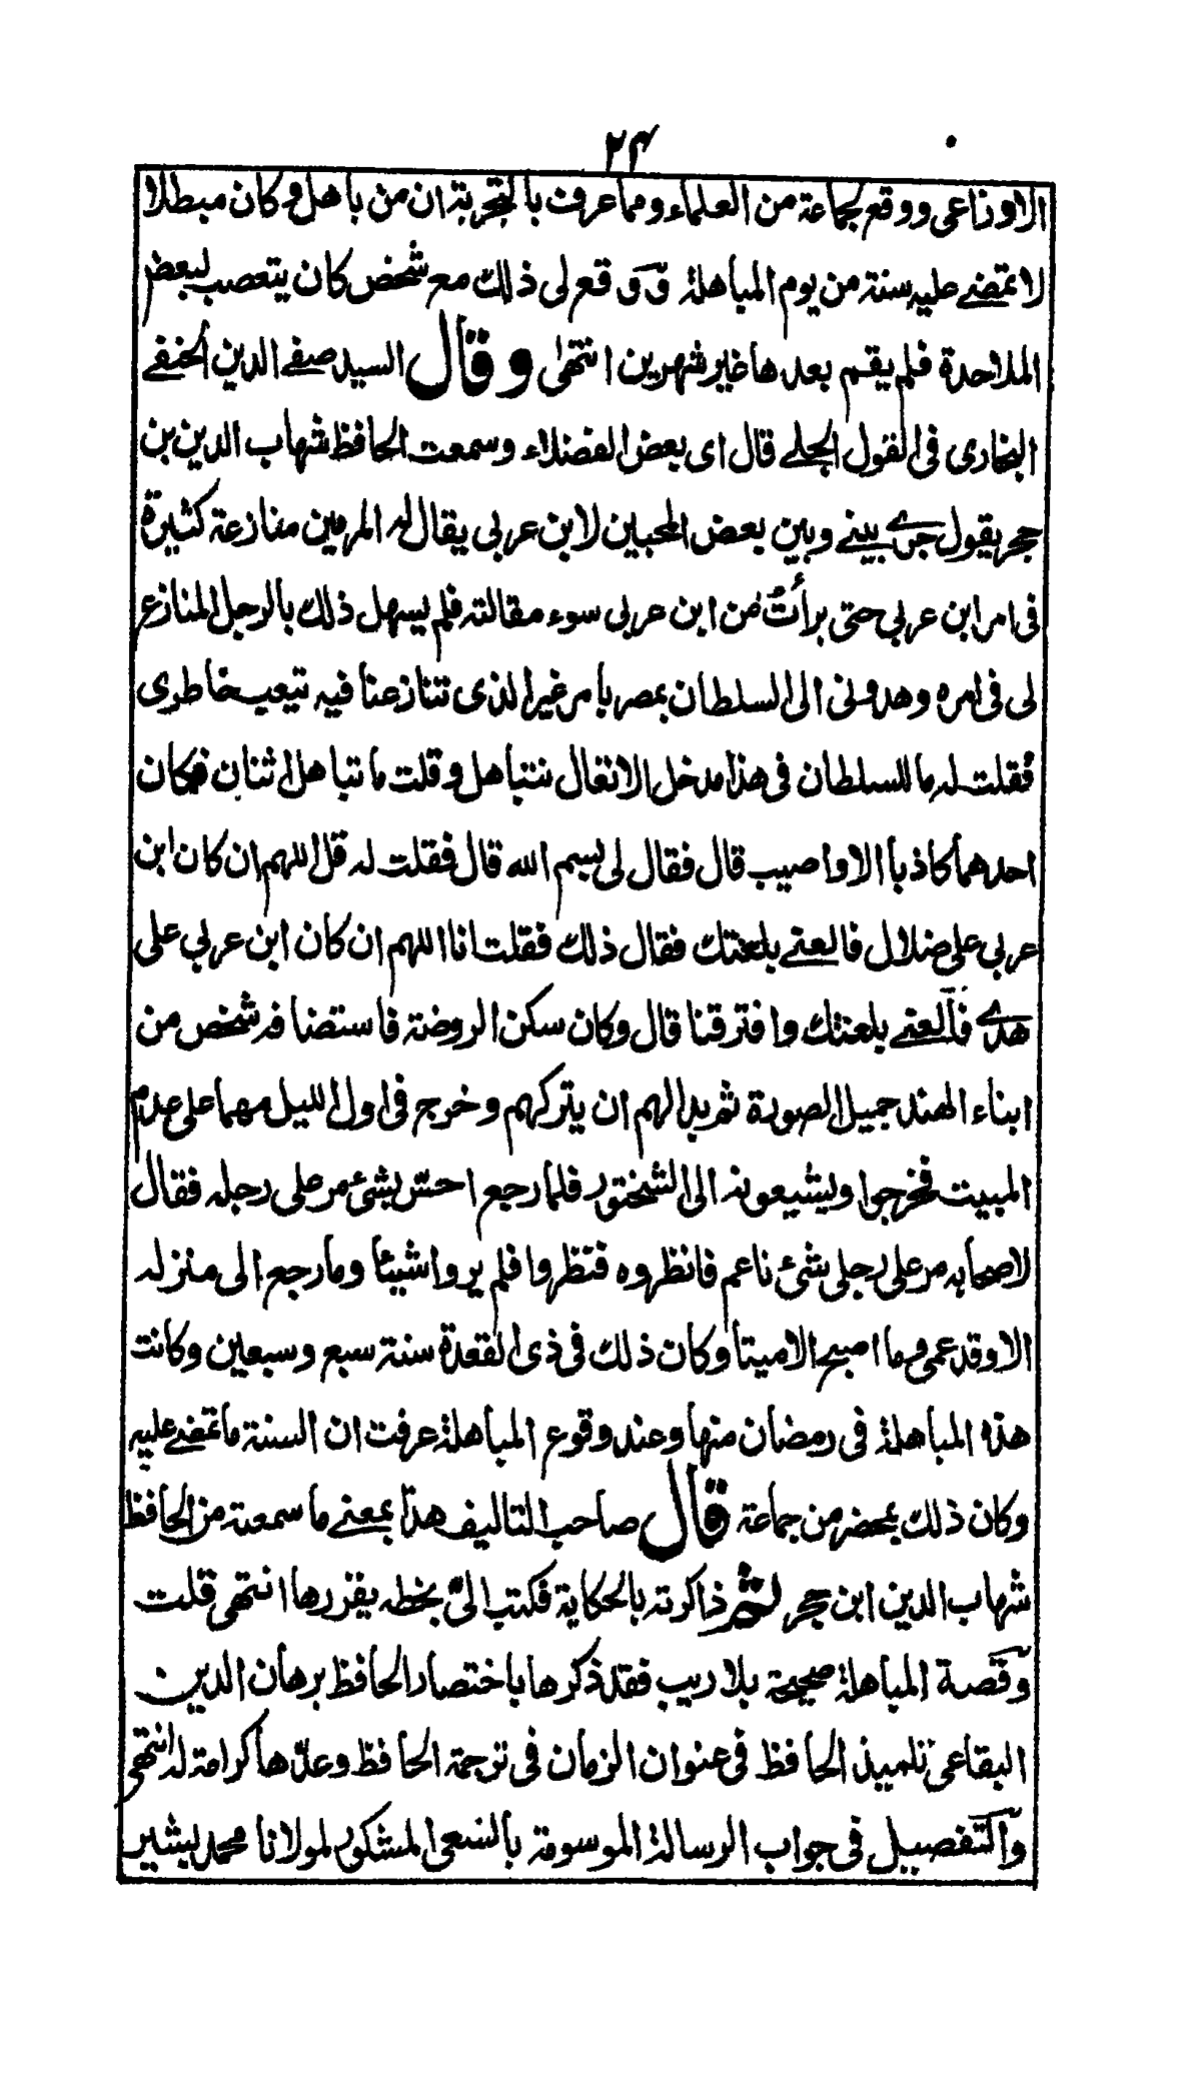 ۲۴
الاوزاعى ووقع لجماعة من العلماء ومما عرف بالتجربة ان من باهل وكان مبطلا
لا تمضے عليه سنة من يوم المباهلة ووقع لى ذلك مع شخص كان يتعصب لبعض
الملاحدة فلم يقم بعدها غير شهرين انتهى وقال السيد صفے الدين الحنفے
البخارى فى القول الجلے قال اى بعض الفضلاء وسمعت الحافظ شهاب الدين بن
حجر يقول جرے بينے وبين بعض المحبين لابن عربى يقال له المرمين منازعة كثيرة
فى امر ابن عربى حتى برأت من ابن عربى سوء مقالته فلم يسهل ذلك بالرجل المنازع
لى فى امره وهدونى الى السلطان بمصر بامر غير الذى تنازعنا فيه تيعب خاطرى
فقلت له ما للسلطان فى هذا مدخل الا نغال نتباهل وقلت ما تباهل اثنان فكان
احدهما كاذبا الا واصيب قال فقال لى بسم الله قال فقلت له قل اللهم ان كان ابن
عربى على ضلال فالعنے بلعنتك فقال ذلك فقلت انا اللهم ان كان ابن عربى على
هدے فالعنے بلعنتك وافترقنا قال وكان سكن الروضة فاستضافه شخص من
ابناء الهند جميل الصورة ثم بدالهم ان يتركهم وخرج فى اول الليل مهما على عدم
المبيت فخرجوا ويشيعونه الى الشختور فلما رجع احس بشئ مر على رجله فقال
لاصحابه مر على رجلى شئ ناعم فانظروه فنظروا فلم يروا شيئا وما رجع الى منزله
الا وقد عمى وما اصبح الا ميتا وكان ذلك فى ذى القعدة سنة سبع وسبعين وكانت
هذه المباهلة فى رمضان منها وعند وقوع المباهلة عرفت ان السنة ما تمضے عليه
وكان ذلك بمحضر من جماعة قال صاحب التاليف هذا بمعنے ما سمعته من الحافظ
شهاب الدين ابن حجر ثم ذاكرته بالحكاية فكتب الىّ بخطه يقررها انتهى قلت
وقصة المباهلة صحيحة بلا ريب فقد ذكرها باختصار الحافظ برهان الدين
البقاعى تلميذ الحافظ فى عنوان الزمان فى ترجمة الحافظ وعدّها كرامة له انتهى
والتفصيل فى جواب الرسالة الموسومة بالسعى المشكور لمولانا محمد بشير